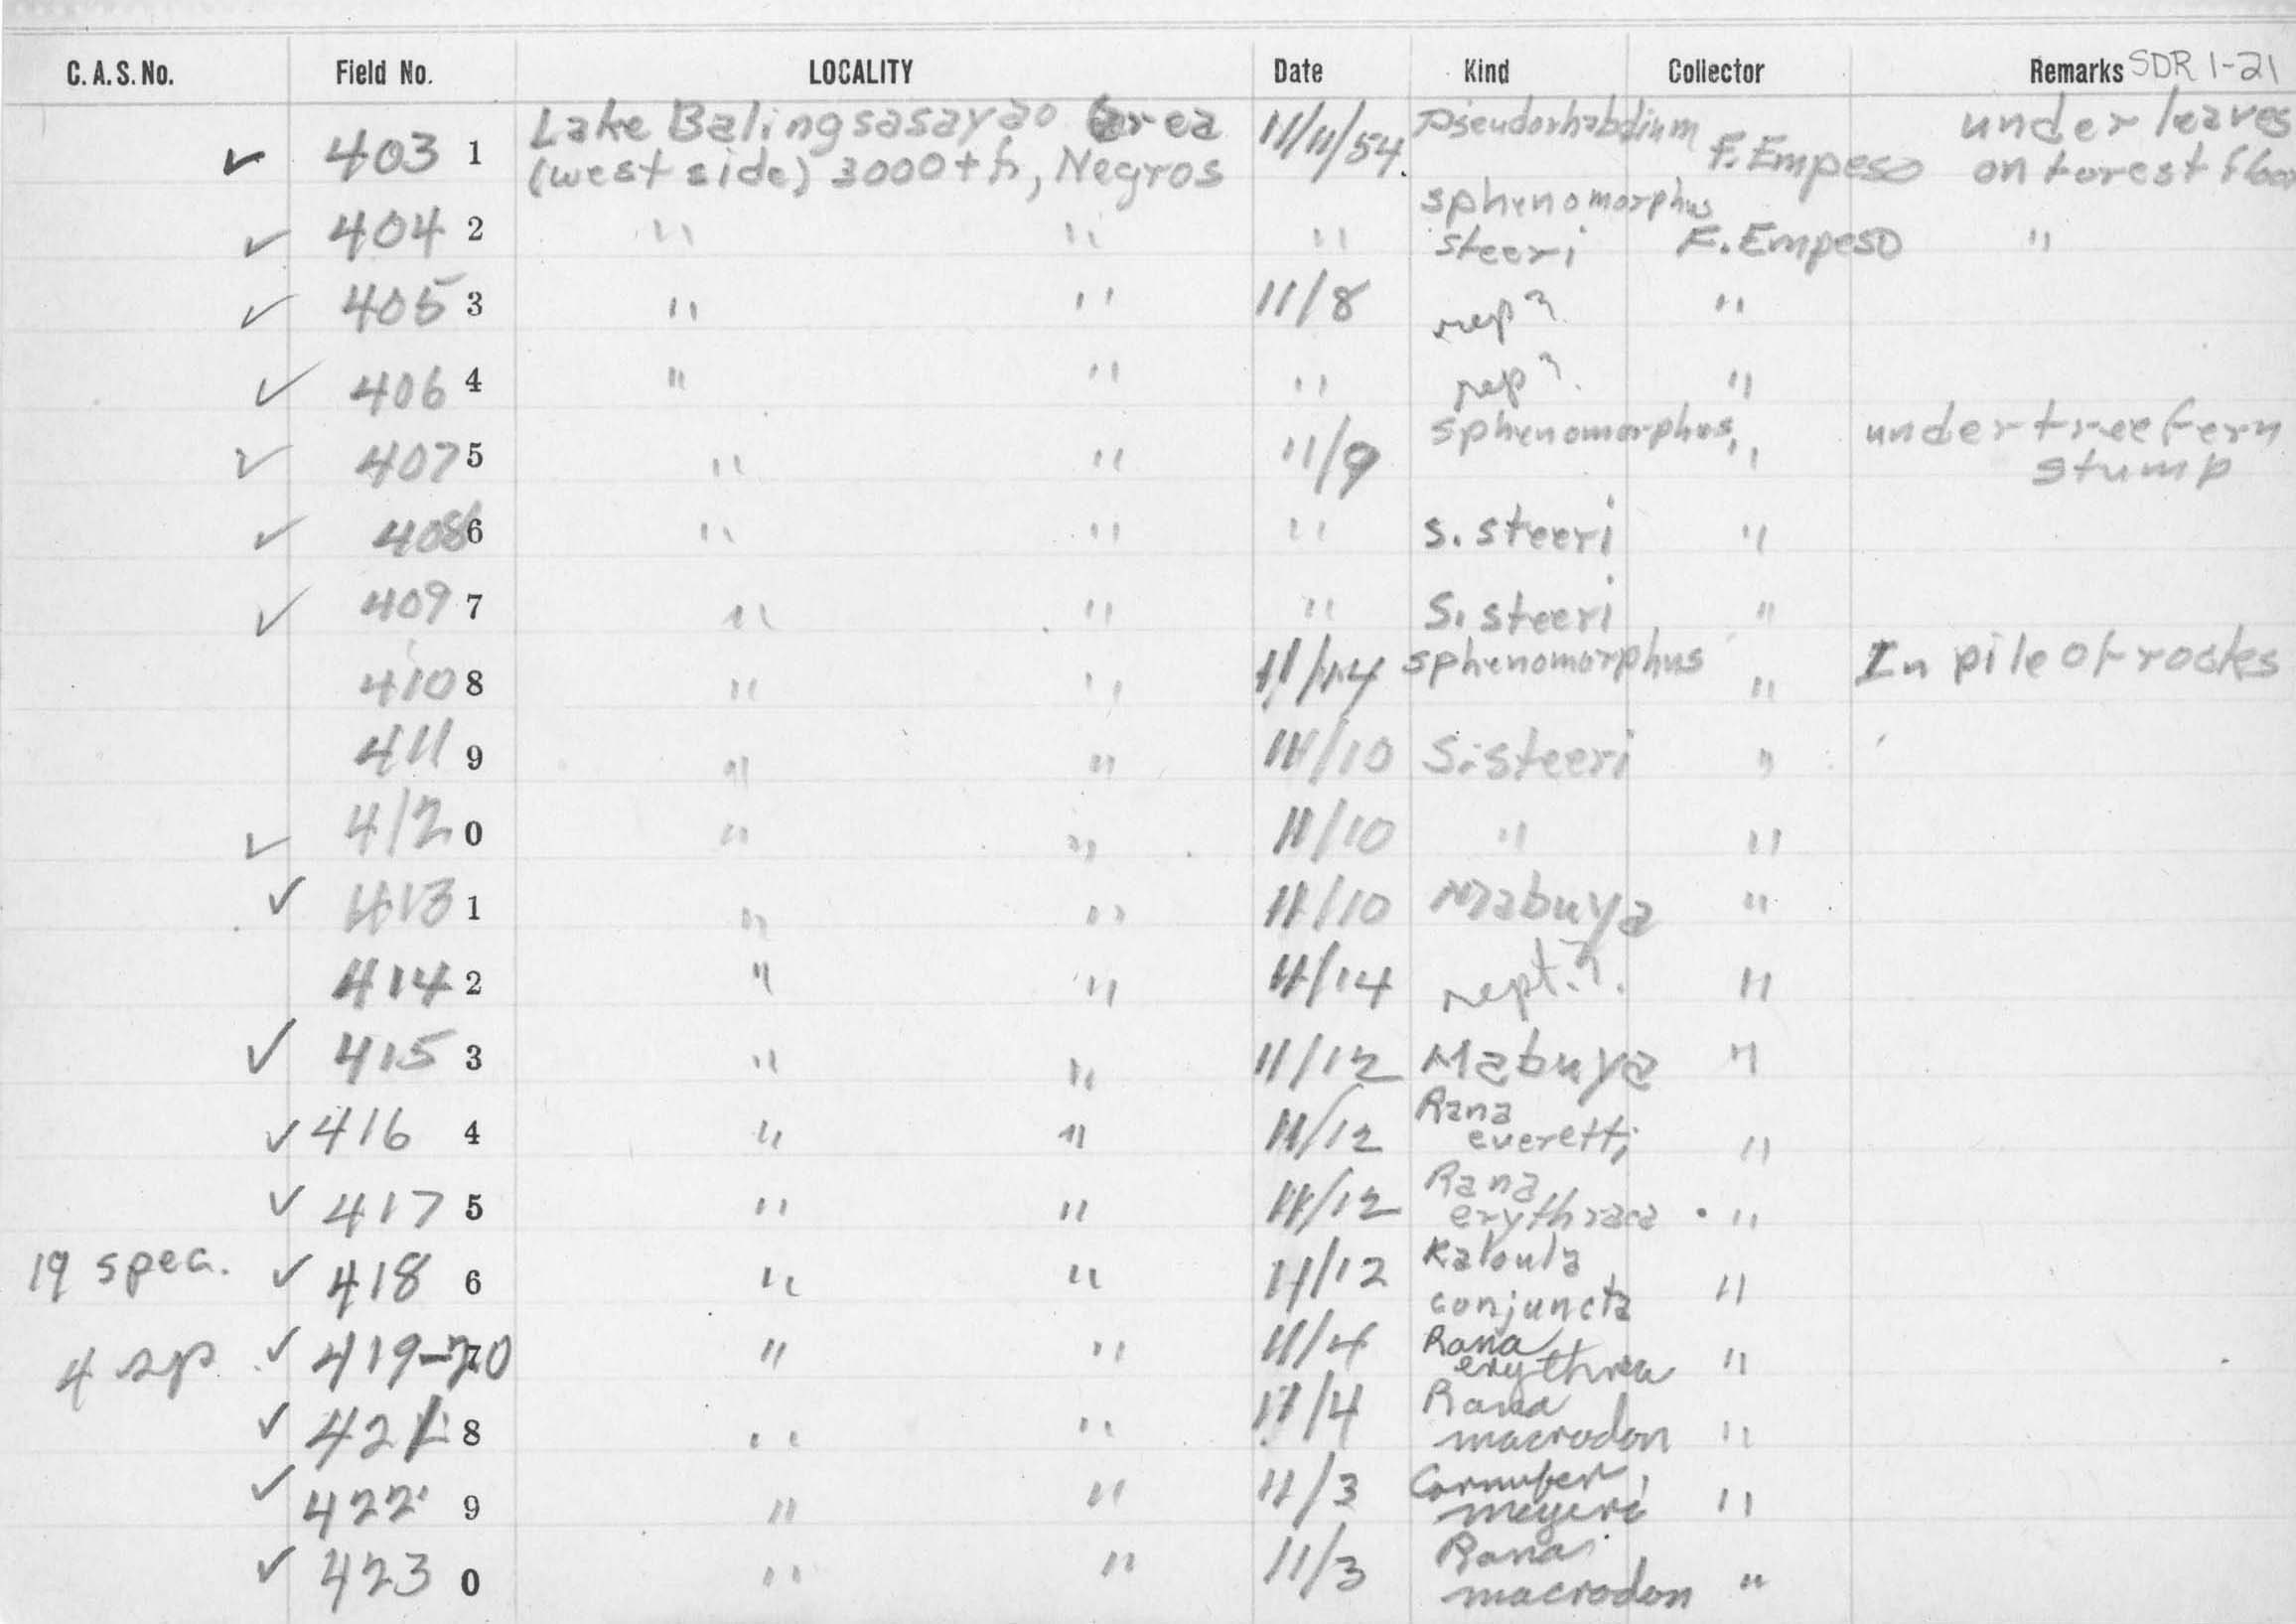 C. A. S. No. Field No. LOCALITY Date Kind Collector Remarks SDR 1-21
✓ 403 1 Lake Balingsasayao area (west side) 3000+ ft, Negros 11/11/54. Pseudorhabdium F. Empeso under leaves on forest floor
✓ 404 2 " " " sphenomorphus steeri F. Empeso "
✓ 405 3 " " 11/8 rep? "
✓ 406 4 " " " rep?. "
✓ 407 5 " " 11/9 sphenomorphus " under tree fern stump
✓ 408 6 " " " S. steeri "
✓ 409 7 " " " S. steeri "
410 8 " " 11/14 sphenomorphus " In pile of rocks
411 9 " " 11/10 S. steeri "
✓ 412 0 " " 11/10 " "
✓ 413 1 " " 11/10 Mabuya "
414 2 " " 11/14 rept.?. "
✓ 415 3 " " 11/12 Mabuya "
✓ 416 4 " " 11/12 Rana everetti "
✓ 417 5 " " 11/12 Rana erythraea "
19 spec. ✓ 418 6 " " 11/12 Kaloula conjuncta "
4 sp ✓ 419-20 7 " " 11/4 Rana erythrea "
✓ 421 8 " " 11/4 Rana macrodon "
✓ 422 9 " " 11/3 Cornufer meyeri "
✓ 423 0 " " 11/3 Rana macrodon "